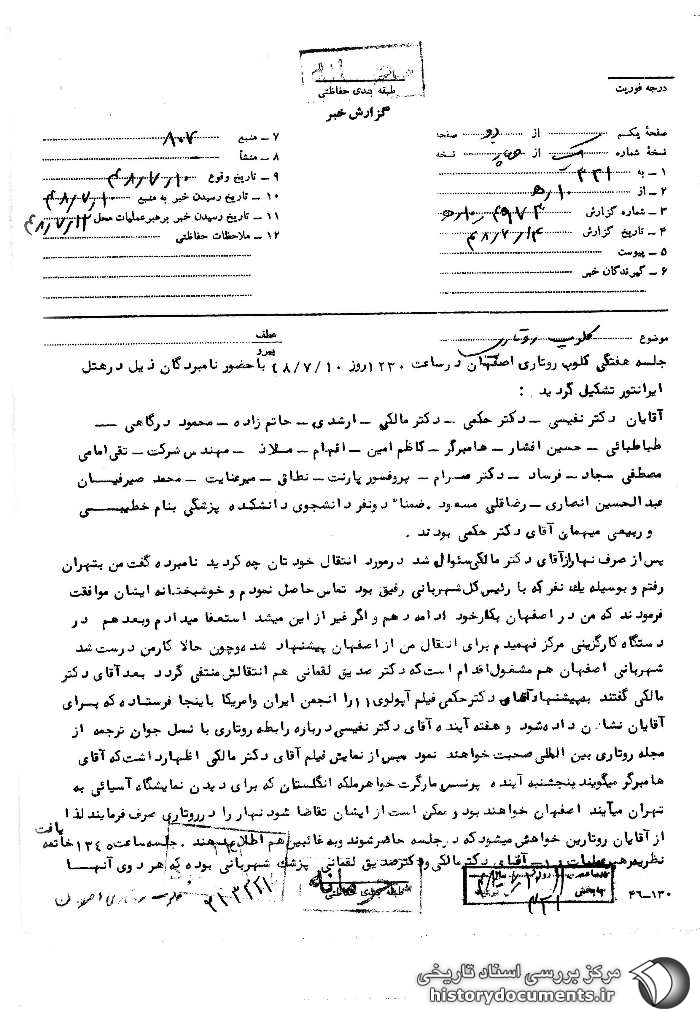 درجه فوریت
طبقه بندی حفاظتی
گزارش خبر
صفحهٔ یکم از دو صفحه
نسخهٔ شماره یک از چهار نسخه
۱ – به ۳۳۱
۲ – از ۱۰ ه
۳ – شماره گزارش ۴۹۷۳ / ۱۰ ه
۴ – تاریخ گزارش ۴۸/۷/۱۴
۵ – پیوست
۶ – گیرندگان خبر
۷ – منبع ۸۰۷
۸ – منشأ
۹ – تاریخ وقوع ۴۸/۷/۱۰
۱۰ – تاریخ رسیدن خبر به منبع ۴۸/۷/۱۰
۱۱ – تاریخ رسیدن خبر برهبر عملیات محل ۴۸/۷/۱۲
۱۲ – ملاحظات حفاظتی
موضوع کلوپ روتاری
عطف
پیرو
جلسه هفتگی کلوپ روتاری اصفهان در ساعت ۱۲۳۰ روز ۴۸/۷/۱۰ با حضور نامبردگان ذیل در هتل
ایرانتور تشکیل گردید :
آقایان دکتر نفیسی – دکتر حکمی – دکتر مالکی – ارشدی – حاتم زاده – محمود درگاهی –
طباطبائی – حسین افشار – هامبرگر – کاظم امین – اقهام – ملاذ – مهندس شرکت – تقی امامی
مصطفی سجاد – فرساد – دکتر صرام – پروفسور پارنت – نطاق – میرعنایت – محمد صیرفیان
عبدالحسین انصاری – رضاقلی مسعود . ضمناً دو نفر دانشجوی دانشکده پزشکی بنام خطیبی
و ربیعی میهمان آقای دکتر حکمی بودند .
پس از صرف نهار از آقای دکتر مالکی سئوال شد در مورد انتقال خودتان چه کردید نامبرده گفت من بتهران
رفتم و بوسیله یک نفر که با رئیس کل شهربانی رفیق بود تماس حاصل نمودم و خوشبختانه ایشان موافقت
فرمودند که من در اصفهان بکار خود ادامه دهم و اگر غیر از این میشد استعفا میدادم و بعد هم در
دستگاه کارگزینی مرکز فهمیدم برای انتقال من از اصفهان پیشنهاد شده و چون حالا کار من درست شد
شهربانی اصفهان هم مشغول اقدام است که دکتر صدیق لقمانی هم انتقالش منتفی گردد بعد آقای دکتر
مالکی گفتند به پیشنهاد آقای دکتر حکمی فیلم آپولوی ۱۱ را انجمن ایران و امریکا باینجا فرستاده که برای
آقایان نشان داده شود و هفته آینده آقای دکتر نفیسی درباره رابطه روتاری با نسل جوان ترجمه از
مجله روتاری بین المللی صحبت خواهند نمود سپس از نمایش فیلم آقای دکتر مالکی اظهار داشت که آقای
هامبرگر میگویند پنجشنبه آینده پرنسس مارگرت خواهر ملکه انگلستان که برای دیدن نمایشگاه آسیائی به
تهران میآیند اصفهان خواهند بود و ممکن است از ایشان تقاضا شود نهار را در روتاری صرف فرمایند لذا
از آقایان روتارین خواهش میشود که در جلسه حاضر شوند و به غائبین هم اطلاع دهند . جلسه ساعت ۱۳۴۰ خاتمه یافت
نظریه رهبر عملیات : ۱ – آقای دکتر مالکی و دکتر صدیق لقمانی پزشک شهربانی بوده که هر دوی آنها
۴۶–۱۳۰
طبقه بندی حفاظتی
محرمانه
۳۳۱
مرکز بررسی اسناد تاریخی
historydocuments.ir